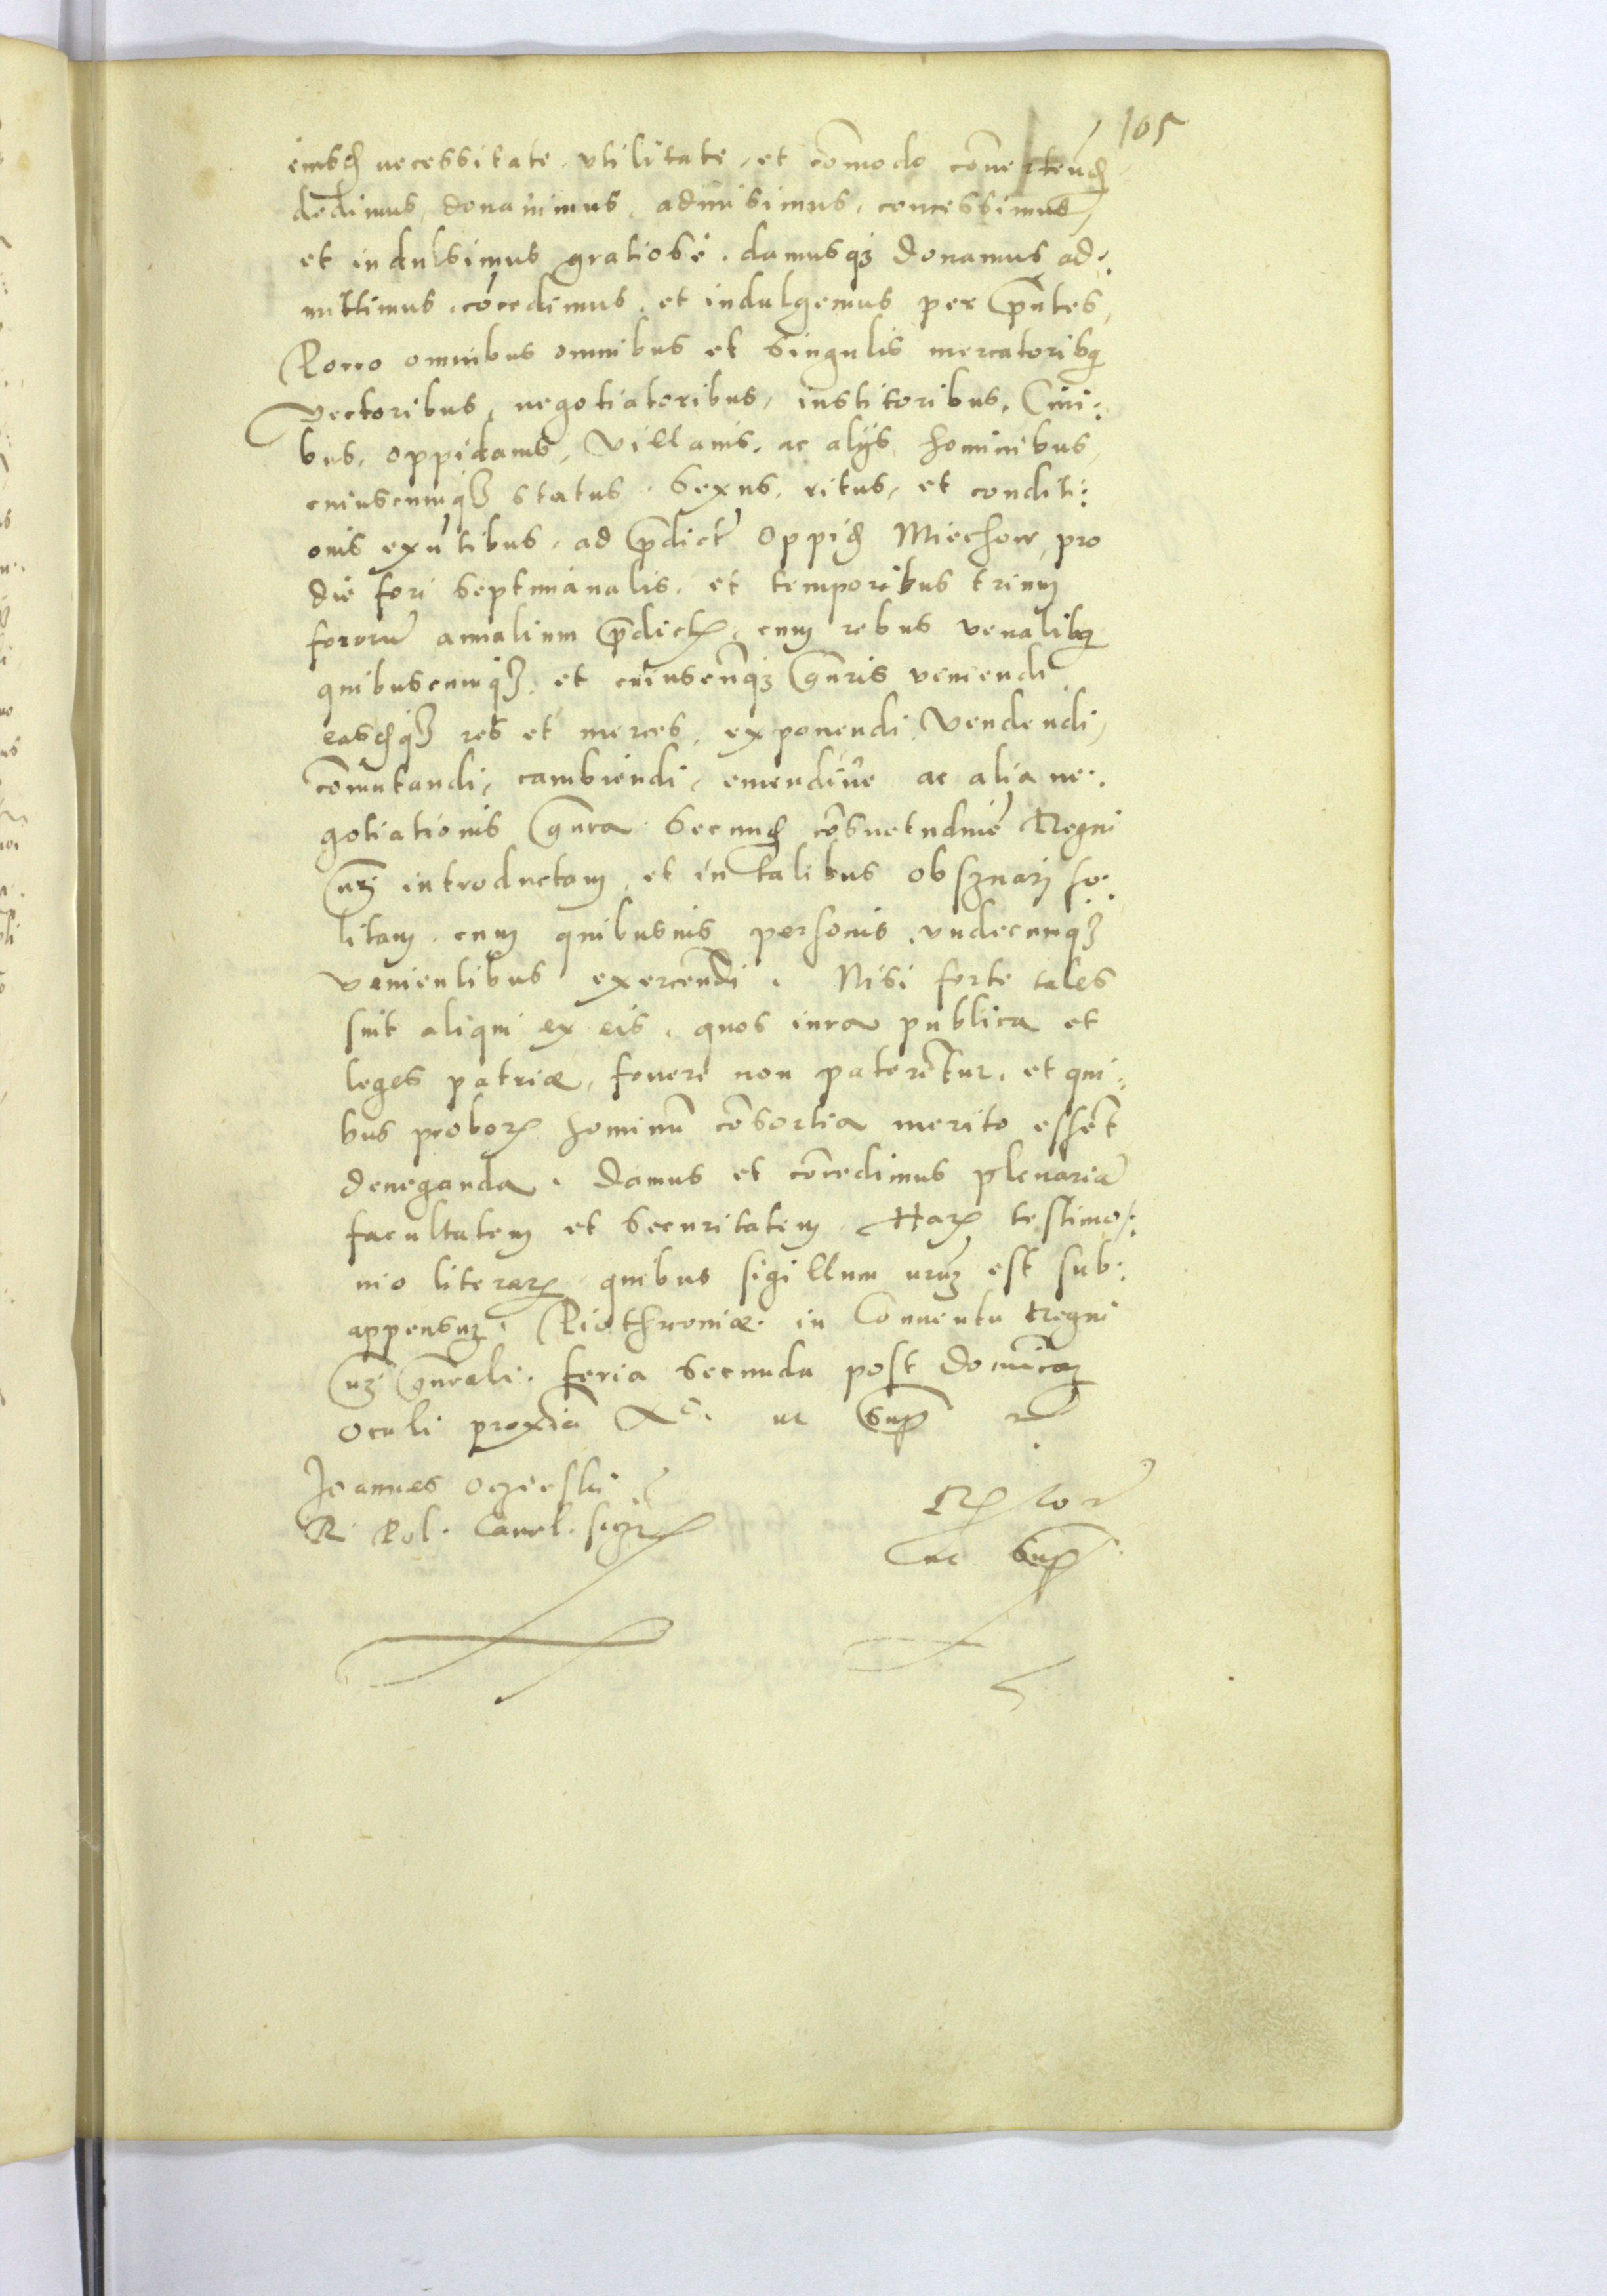 165
eiusđ necessitate, vtilitate, et com̄odo conuertenđ
dedimus, donauimus, admisimus, concessimus,
et indulsimus gratiose. damusqȝ donamus ad:
mittimus, cōcedimus, et indulgemus per p̄ntes,
Porro omnibus omnibus et singulis mercatoribꝫ
Vectoribus, negotiatoribus, institoribus, Ciui:
bus, oppidanis, Villanis, ac alijs hominibus,
cuiuscumqȝ status, sexus, ritus, et conditi:
onis exn̄tibus, ad p̄dict̄ Oppiđ Miechow, pro
die fori septimanalis, et temporibus trium
fororū annalium p̄dictꝝ, cum rebus venalibꝫ
quibuscumqȝ, et cuiuscūqȝ gn̄ris veniendi
easđqȝ res et merces, exponendi, Vendendi,
com̄utandi, cambiendi, emendiue ac alia ne:
gotiationis gn̄ra secunđ cōsuetudinē Regni
nr̄i introductam, et in talibus obseruari so:
litam, cum quibusuis personis, vndecumqȝ
venientibus exercendi. Nisi forte tales
sint aliqui ex eis, quos iura publica et
leges patriæ, fouere non paterētur, et qui:
bus proborꝝ hominū cōsortia merito essent
deneganda. Damus et concedimus plenariā
facultatem et securitatem, Harꝝ testimo:
nio literarꝝ quibus sigillum nrūm est sub:
appensum. Piothrcouiæ in Conuentu Regni
nr̄i gn̄rali. feria secunda post Dominicam
Oculi proxīa Aº. ut sup̄
Joannes Oczieski
R. Pol. Cancl. scrȝ
ut sup̄